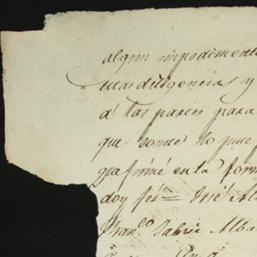 algun impedimento
mas diligencias y
á las partes para
que conste lo puse
firmé en la form
doy feé = José Al
Fran.co Xavie. Alba